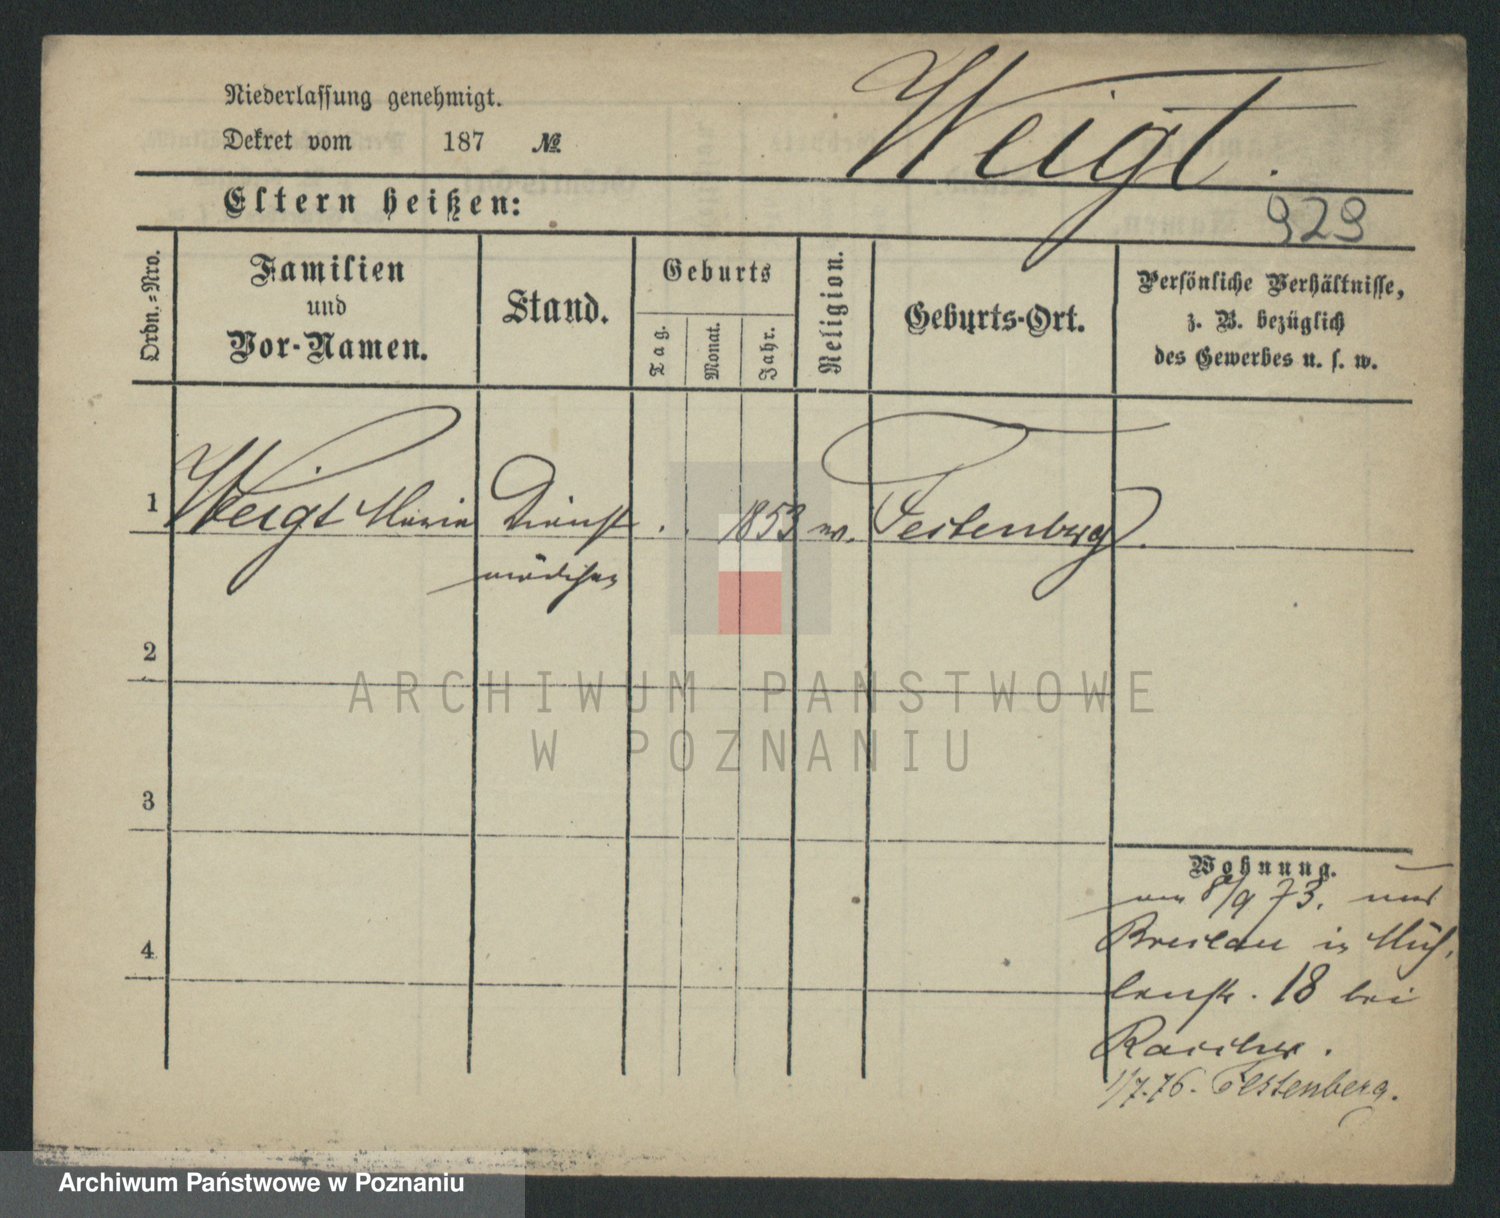 Niederlassung genehmigt.
Dekret vom 187 №
Weigt.
Eltern heißen:
929
Ordn.-Nro.
Familien
und
Vor-Namen.
Stand.
Geburts
Tag.
Monat.
Jahr.
Religion.
Geburts-Ort.
Persönliche Verhältnisse,
z. B. bezüglich
des Gewerbes u. s. w.
1 Weigt Marie Dienst . . 1853 ev. Festenberg.
mädchen
2
ARCHIWUM PAŃSTWOWE
W POZNANIU
3
Wohnung.
8/9 73.
Breslau in Müh,
4
lenstr. 18 bei
1/7.76. Festenberg.
Archiwum Państwowe w Poznaniu